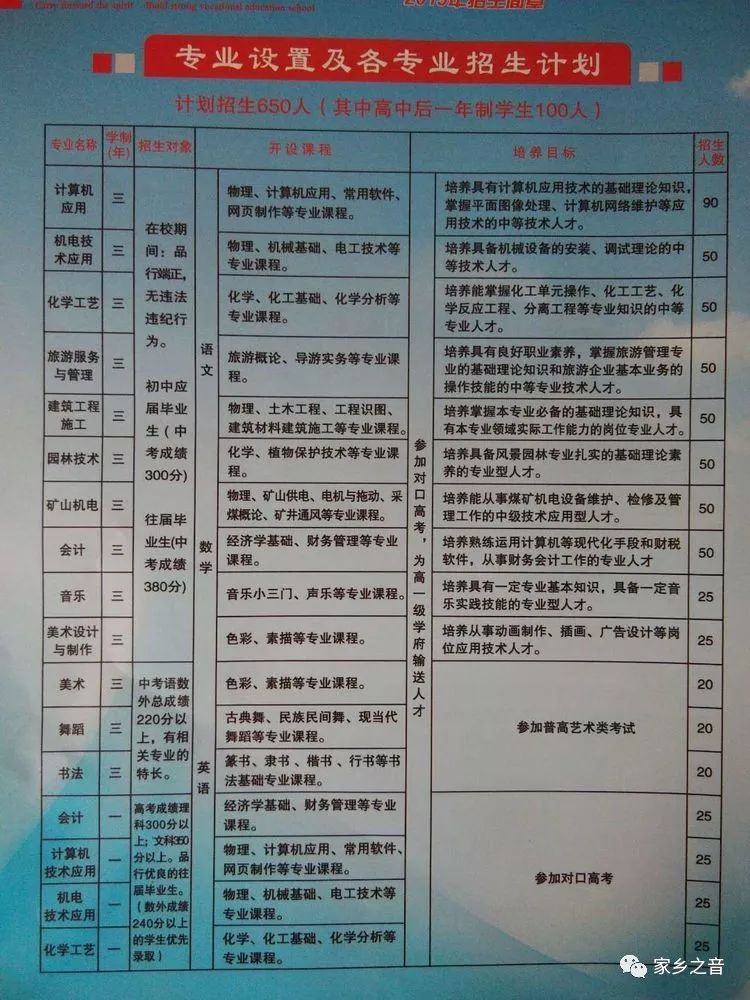 Carry forward the spirit Build strong vocational education school
2015年招生简章
专业设置及各专业招生计划
计划招生650人（其中高中后一年制学生100人）
专业名称 学制(年) 招生对象 开设课程 培养目标 招生人数
计算机应用 三 物理、计算机应用、常用软件、网页制作等专业课程。 培养具有计算机应用技术的基础理论知识，掌握平面图像处理、计算机网络维护等应用技术的中等技术人才。 90
机电技术应用 三 物理、机械基础、电工技术等专业课程。 培养具备机械设备的安装、调试理论的中等技术人才。 50
化学工艺 三 化学、化工基础、化学分析等专业课程。 培养能掌握化工单元操作、化工工艺、化学反应工程、分离工程等专业知识的中等专业人才。 50
旅游服务与管理 三 旅游概论、导游实务等专业课程。 培养具有良好职业素养，掌握旅游管理专业的基础理论知识和旅游企业基本业务的操作技能的中等专业技术人才。 50
建筑工程施工 三 物理、土木工程、工程识图、建筑材料建筑施工等专业课程。 培养掌握本专业必备的基础理论知识，具有本专业领域实际工作能力的岗位专业人才。 50
园林技术 三 化学、植物保护技术等专业课程。 培养具备风景园林专业扎实的基础理论素养的专业型人才。 50
矿山机电 三 物理、矿山供电、电机与拖动、采煤概论、矿井通风等专业课程。 培养能从事煤矿机电设备维护、检修及管理工作的中级技术应用型人才。 50
会计 三 经济学基础、财务管理等专业课程。 培养熟练运用计算机等现代化手段和财税软件，从事财务会计工作的专业人才 50
音乐 三 音乐小三门、声乐等专业课程。 培养具有一定专业基本知识，具备一定音乐实践技能的专业型人才。 25
美术设计与制作 三 色彩、素描等专业课程。 培养从事动画制作、插画、广告设计等岗位应用技术人才。 25
在校期间：品行端正，无违法违纪行为。
初中应届毕业生（中考成绩300分）
往届毕业生(中考成绩380分)
美术 三 色彩、素描等专业课程。 20
舞蹈 三 古典舞、民族民间舞、现当代舞蹈等专业课程。 20
书法 三 篆书、隶书、楷书、行书等书法基础专业课程。 20
中考语数外总成绩220分以上，有相关专业的特长。
参加普高艺术类考试
会计 一 经济学基础、财务管理等专业课程。 25
计算机技术应用 一 物理、计算机应用、常用软件、网页制作等专业课程。 25
机电技术应用 一 物理、机械基础、电工技术等专业课程。 25
化学工艺 一 化学、化工基础、化学分析等专业课程。 25
高考成绩理科300分以上；文科350分以上。品行优良的往届毕业生。（数外成绩240分以上的学生优先录取）
参加对口高考
语文
数学
英语
参加对口高考，为高一级学府输送人才
家乡之音